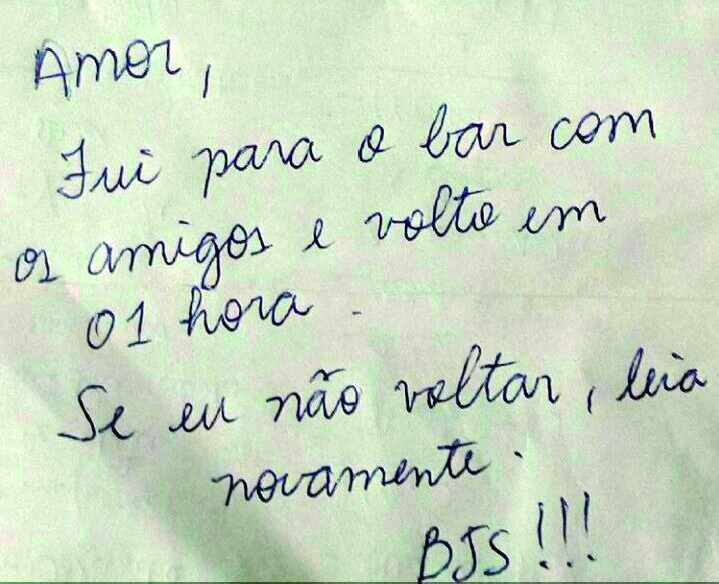 Amor,
Fui para o bar com
os amigos e volto em
01 hora.
Se eu não voltar, leia
novamente.
BJS!!!